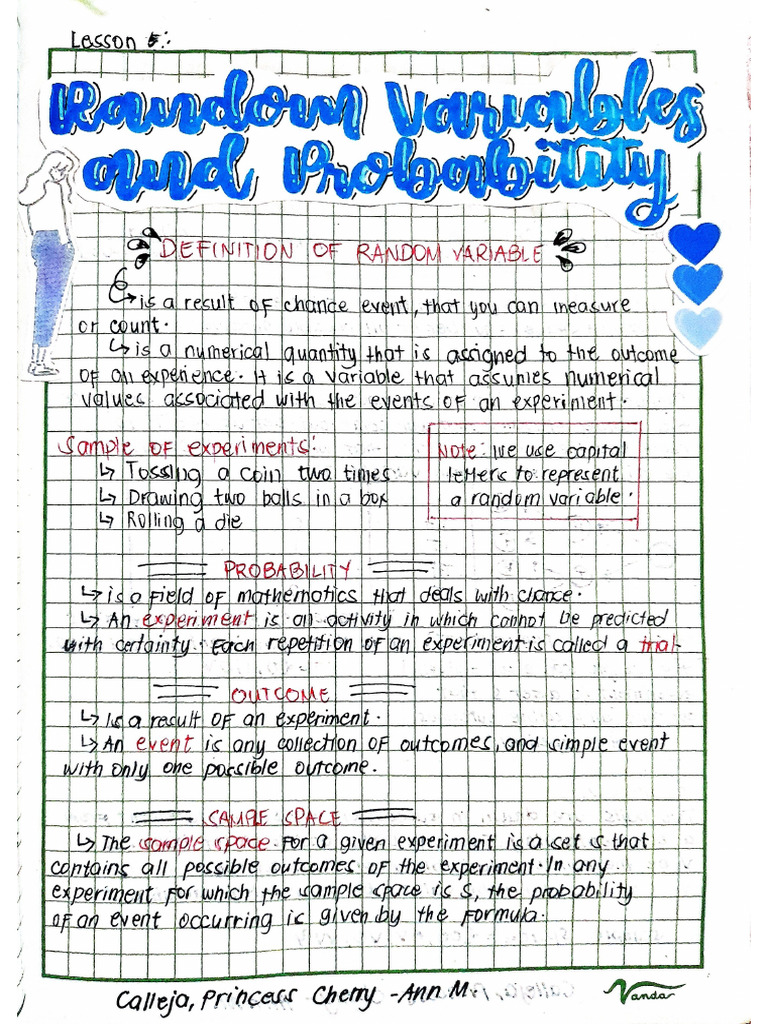 Lesson 5:
Random Variables
and Probability
DEFINITION OF RANDOM VARIABLE
is a result of chance event, that you can measure
or count.
is a numerical quantity that is assigned to the outcome
of an experience. It is a variable that assumies numerical
values associated with the events of an experiment.
Sample of experiments:
Tossing a coin two times
Drawing two balls in a box
Rolling a die
Note: we use capital
letters to represent
a random variable.
PROBABILITY
is a field of mathematics that deals with chance.
An experiment is an activity in which cannot be predicted
with certainty. Each repetition of an experiment is called a trial.
OUTCOME
Is a result of an experiment.
An event is any collection of outcomes, and simple event
with only one possible outcome.
SAMPLE SPACE
The sample space for a given experiment is a set s that
contains all possible outcomes of the experiment. In any
experiment for which the sample space is S, the probability
of an event occurring is given by the formula.
Calleja, Princess Cherry -Ann M
Vanda